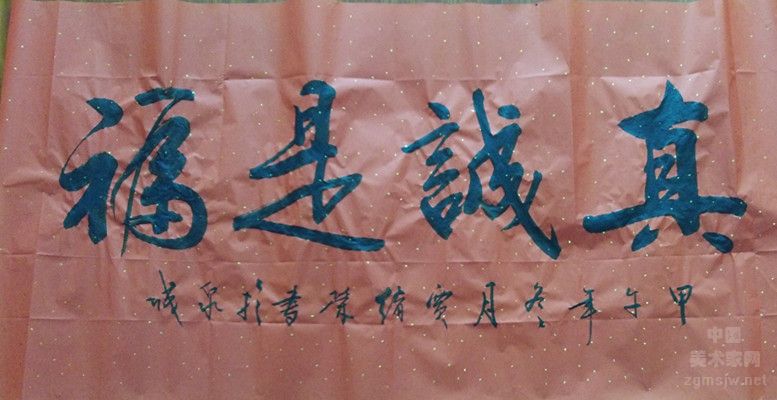 真誠是福
甲午年冬月賈綃榮書於泉城
中国
美术家网
zgmsjw.net